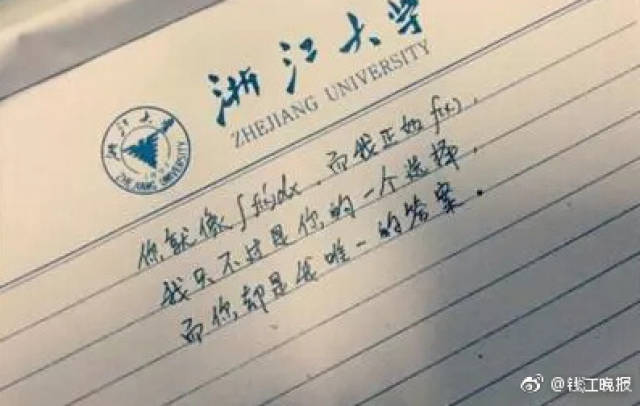 浙江大学
ZHEJIANG UNIVERSITY
浙江大学
ZHEJIANG UNIVERSITY
你就像∫f(x)dx,而我正如f(x),
我只不过是你的一个选择,
而你却是我唯一的答案。
@钱江晚报